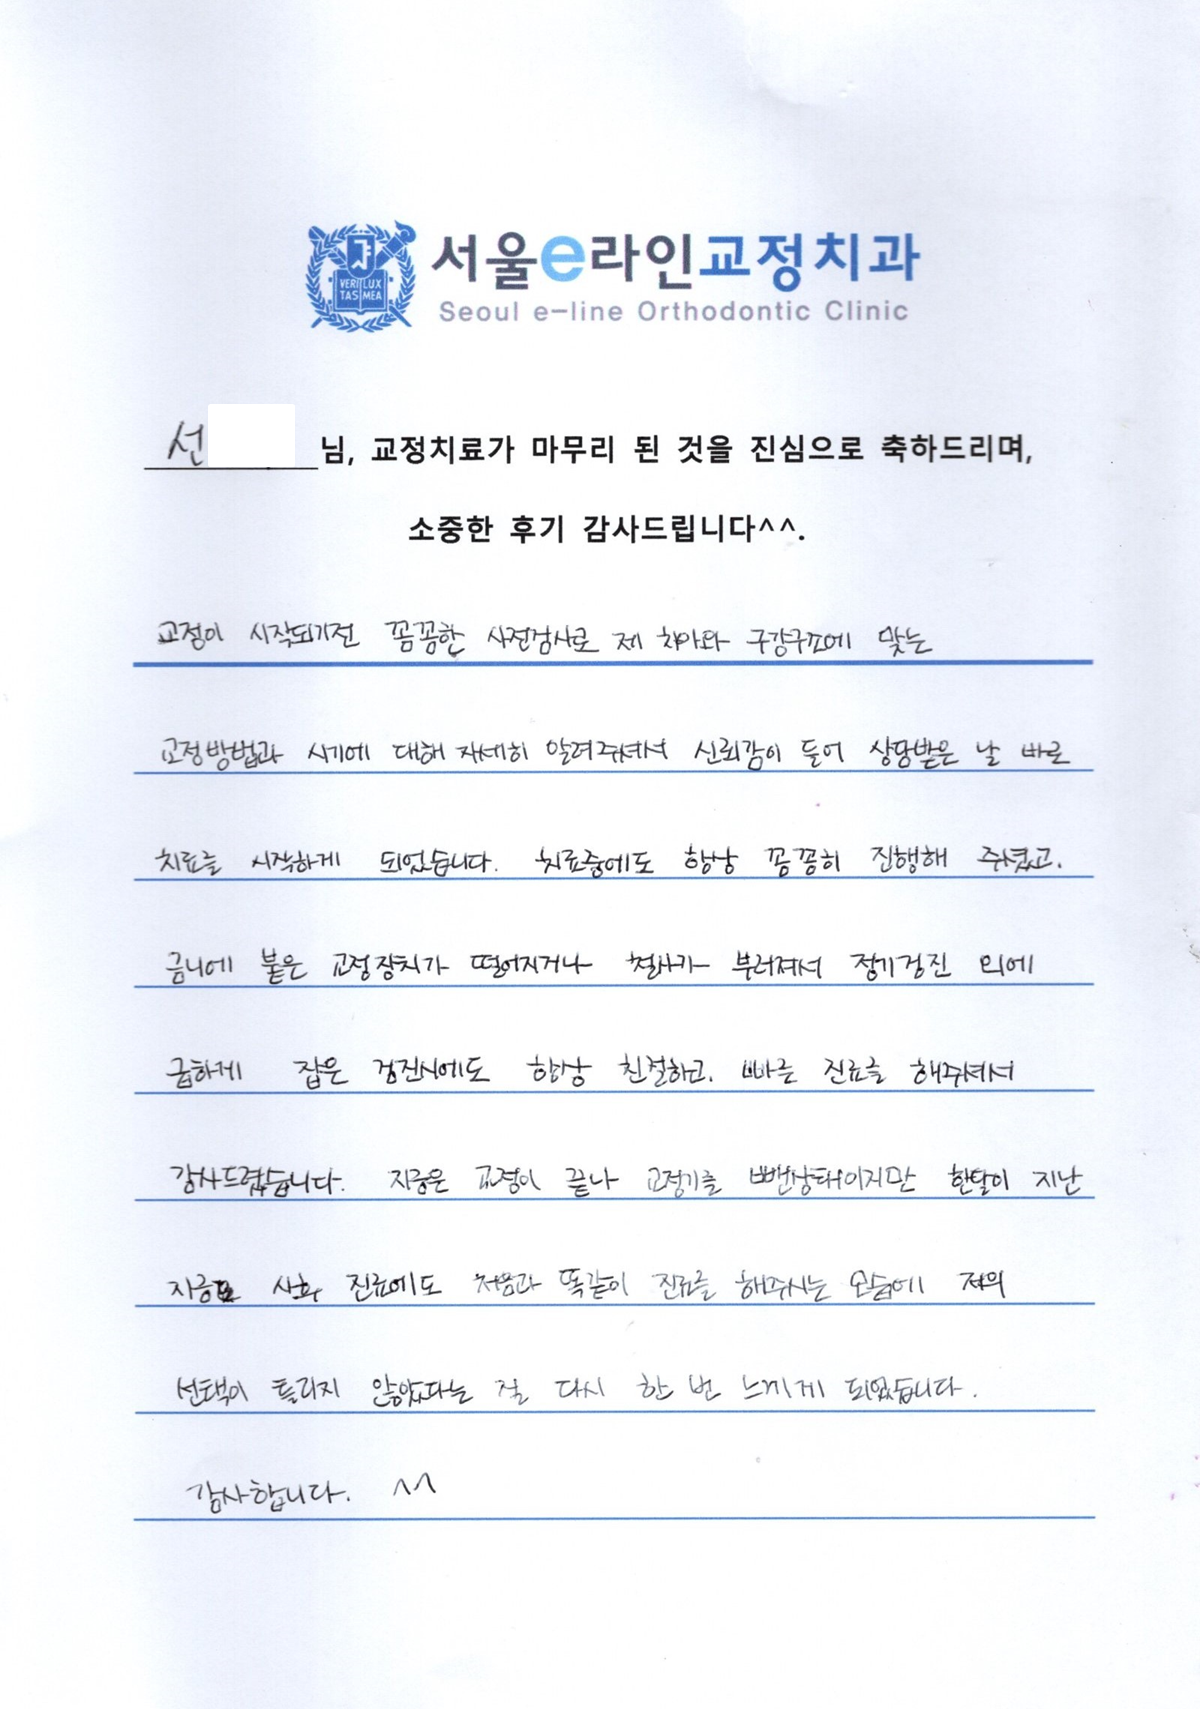 서울e라인교정치과
Seoul e-line Orthodontic Clinic
VERI LUX
TAS MEA
선 님, 교정치료가 마무리 된 것을 진심으로 축하드리며,
소중한 후기 감사드립니다^^.
교정이 시작되기전 꼼꼼한 사전검사로 제 치아와 구강구조에 맞는
교정방법과 시기에 대해 자세히 알려주셔서 신뢰감이 들어 상담받은 날 바로
치료를 시작하게 되었습니다. 치료중에도 항상 꼼꼼히 진행해 주셨고,
금니에 붙은 교정장치가 떨어지거나 철사가 부러져서 정기검진 외에
급하게 잡은 검진시에도 항상 친절하고, 빠른 진료를 해주셔서
감사드렸습니다. 지금은 교정이 끝나 교정기를 뺀상태이지만 한달이 지난
지금도 사후 진료에도 처음과 똑같이 진료를 해주시는 모습에 저의
선택이 틀리지 않았다는 걸 다시 한 번 느끼게 되었습니다.
감사합니다. ^^